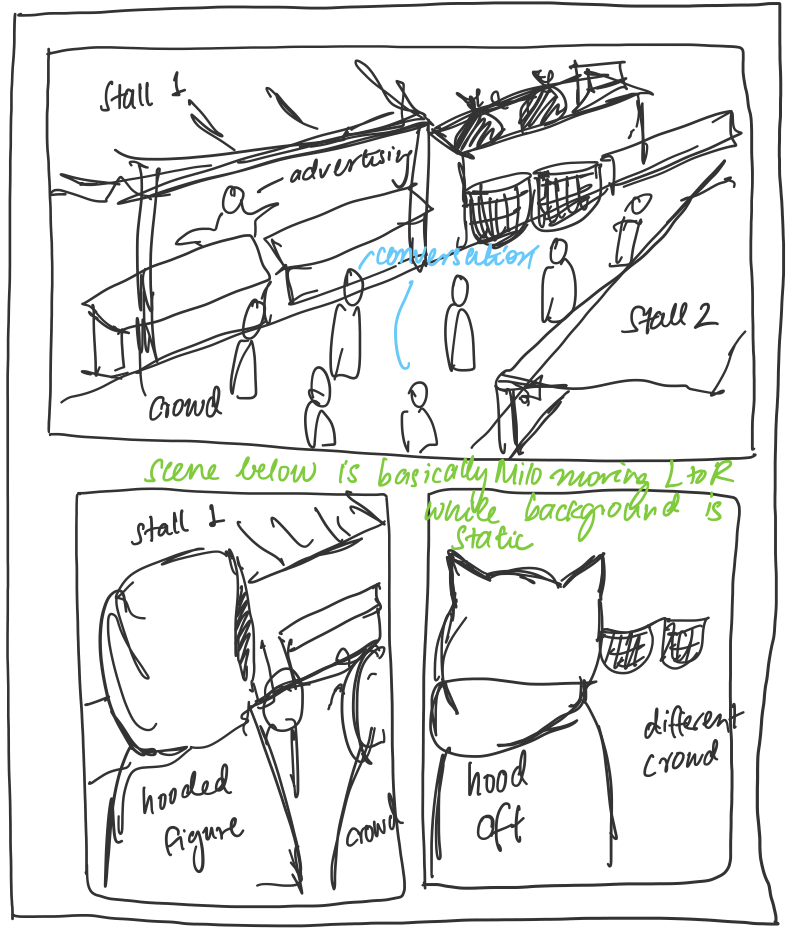 Stall 1
advertising
conversation
Stall 2
crowd
scene below is basically Milo moving L to R
while background is
static
stall 1
hooded
figure
crowd
different
crowd
hood
off